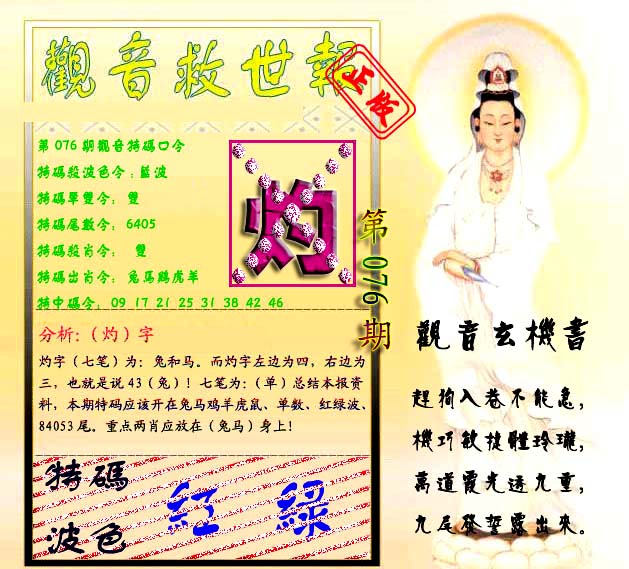 觀音救世報
正版
第 076 期觀音特碼口令
特碼殺波色令：藍波
特碼單雙令： 雙
特碼尾數令： 6405
特碼殺肖令： 雙
特碼出肖令： 兔馬鷄虎羊
特中碼令： 09 17 21 25 31 38 42 46
灼
第076期
分析:（灼）字
灼字（七笔）为：兔和马。而灼字左边为四，右边为
三，也就是说 43（兔）！七笔为：（单）总结本报资
料，本期特码应该开在兔马鸡羊虎鼠、单数、红绿波、
84053 尾。重点两肖应放在（兔马）身上!
特碼
波色
紅 綠
觀音玄機書
趕狗入巷不能急，
機巧敏捷體玲瓏，
萬道霞光透九重，
九尾發誓露出來。